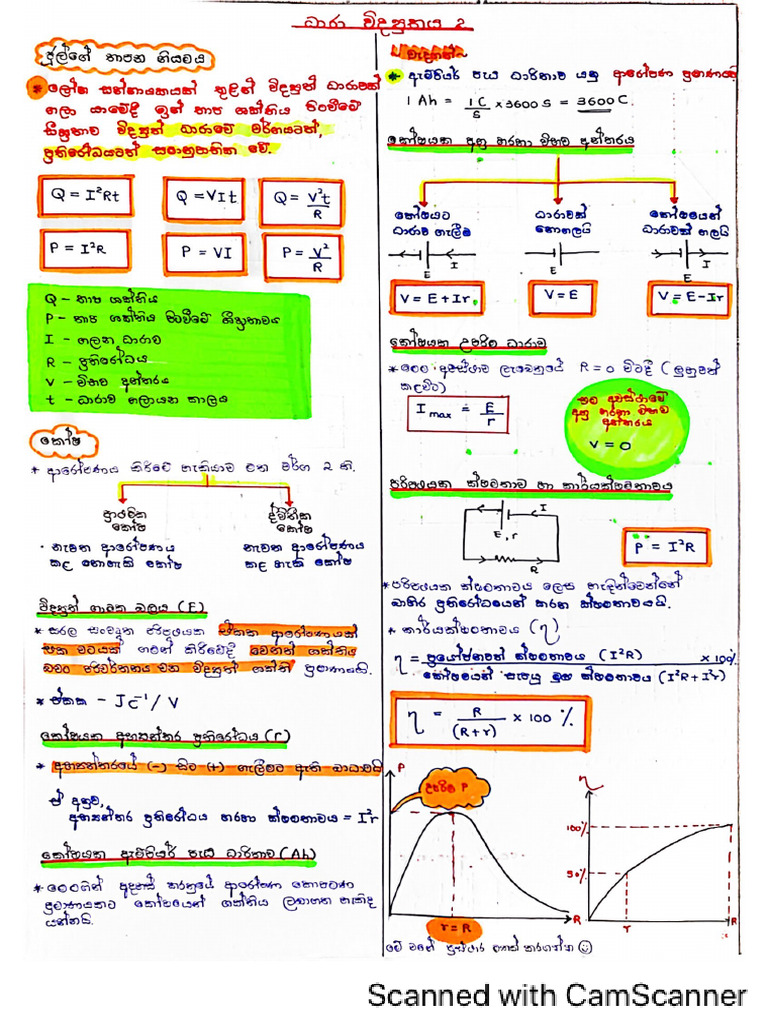 ධාරා විද්‍යුතය 2
ජූල්ගේ තාපන නියමය
* ලෝහ සන්නායකයක් තුළින් විද්‍යුත් ධාරාවක්
ගලා යාමේදී ඉන් තාප ශක්තිය පිටවීමේ
සීඝ්‍රතාව විද්‍යුත් ධාරාවේ වර්ගයටත්,
ප්‍රතිරෝධයටත් සමානුපාතික වේ.
Q = I²Rt
Q = VIt
Q = V²t / R
P = I²R
P = VI
P = V² / R
Q - තාප ශක්තිය
P - තාප ශක්තිය පිටවීමේ සීඝ්‍රතාවය
I - ගලන ධාරාව
R - ප්‍රතිරෝධය
V - විභව අන්තරය
t - ධාරාව ගලායන කාලය
කෝෂ
* ආරෝපණය කිරීමේ හැකියාව මත වර්ග 2 කි.
ප්‍රාථමික
කෝෂ
ද්විතීක
කෝෂ
· නැවත ආරෝපණය
කළ නොහැකි කෝෂ
නැවත ආරෝපණය
කළ හැකි කෝෂ
විද්‍යුත් ගාමක බලය (E)
* සරල සංවෘත පරිපථයක ඒකක ආරෝපණයක්
එක වටයක් ගමන් කිරීමේදී වෙනත් ශක්තිය
බවට පරිවර්තනය වන විද්‍යුත් ශක්ති ප්‍රමාණයයි.
* ඒකක - JC⁻¹ / V
කෝෂයක අභ්‍යන්තර ප්‍රතිරෝධය (r)
* අභ්‍යන්තරයේ (-) සිට (+) ගැලීමට ඇති බාධාවයි
ඒ අනුව,
අභ්‍යන්තර ප්‍රතිරෝධය හරහා ක්ෂමතාවය = I²r
කෝෂයක ඇම්පියර් පැය ධාරිතාව (Ah)
* මෙමගින් අදහස් කරනුයේ ආරෝපණ කොපමණ
ප්‍රමාණයකට කෝෂයෙන් ශක්තිය ලබාගත හැකිද
යන්නයි.
වැදගත්
* ඇම්පියර් පැය ධාරිතාව යනු ආරෝපණ ප්‍රමාණයේ
1 Ah = 1C/S × 3600 S = 3600 C.
කෝෂයක අග්‍ර හරහා විභව අන්තරය
කෝෂයට
ධාරාව ගැලීම
ධාරාවක්
නොගලයි
කෝෂයෙන්
ධාරාවක් ගලයි
E I
E
I
E
V = E + Ir
V = E
V = E - Ir
කෝෂයක උපරිම ධාරාව
* මෙම අවස්ථාව ලැබෙනුයේ R = 0 විටදී ( ලුහුවත්
කළවිට)
I max = E / r
එම අවස්ථාවේ
අග්‍ර හරහා විභව
අන්තරය
V = 0
පරිපථයක ක්ෂමතාව හා කාර්යක්ෂමතාවය
I
E, r
R
P = I²R
* පරිපථයක ක්ෂමතාවය ලෙස හැඳින්වෙන්නේ
බාහිර ප්‍රතිරෝධයෙන් කරන ක්ෂමතාවයයි.
* කාර්යක්ෂමතාවය (η)
η = ප්‍රයෝජනවත් ක්ෂමතාවය (I²R) × 100%
කෝෂයෙන් සැපයූ මුළු ක්ෂමතාවය (I²R + I²r)
η = R / (R + r) × 100 %
P
උපරිම P
R
r = R
η
100%
50%
r
R
මේ වගේ ප්‍රස්ථාර මතක් කරගන්න ☺
Scanned with CamScanner